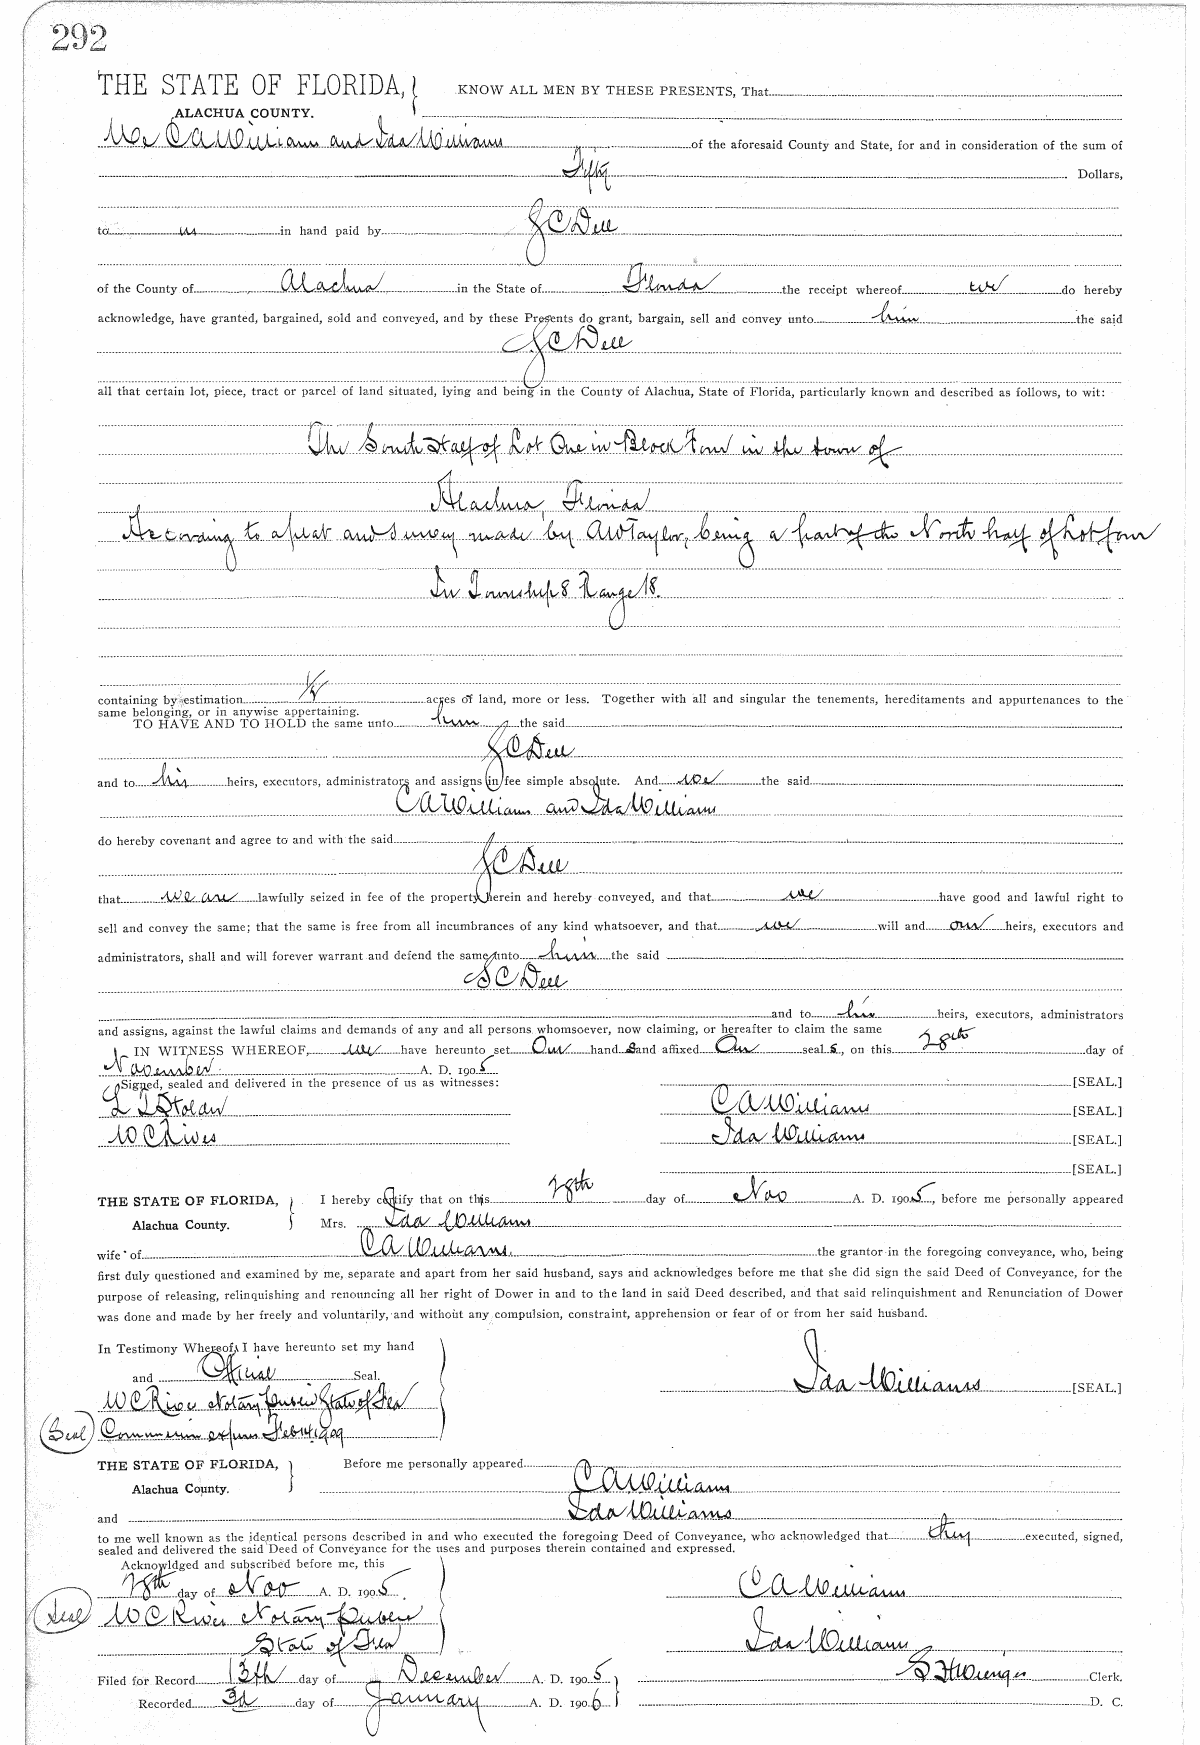 292
THE STATE OF FLORIDA, KNOW ALL MEN BY THESE PRESENTS, That
ALACHUA COUNTY.
We CA Williams and Ida Williams of the aforesaid County and State, for and in consideration of the sum of
Fifty Dollars,
to us in hand paid by JC Dell
of the County of Alachua in the State of Florida the receipt whereof we do hereby
acknowledge, have granted, bargained, sold and conveyed, and by these Presents do grant, bargain, sell and convey unto him the said
JC Dell
all that certain lot, piece, tract or parcel of land situated, lying and being in the County of Alachua, State of Florida, particularly known and described as follows, to wit:
The South Half of Lot One in Block Four in the town of
Alachua, Florida
According to a plat and survey made by AW Taylor, being a part of the North half of Lot four
In Township 8 Range 18.
containing by estimation acres of land, more or less. Together with all and singular the tenements, hereditaments and appurtenances to the
same belonging, or in anywise appertaining.
TO HAVE AND TO HOLD the same unto him the said
JC Dell
and to his heirs, executors, administrators and assigns in fee simple absolute. And we the said
CA Williams and Ida Williams
do hereby covenant and agree to and with the said
JC Dell
that we are lawfully seized in fee of the property herein and hereby conveyed, and that we have good and lawful right to
sell and convey the same; that the same is free from all incumbrances of any kind whatsoever, and that we will and our heirs, executors and
administrators, shall and will forever warrant and defend the same unto him the said
JC Dell
and to his heirs, executors, administrators
and assigns, against the lawful claims and demands of any and all persons whomsoever, now claiming, or hereafter to claim the same
IN WITNESS WHEREOF, we have hereunto set Our hand s and affixed Our seal s, on this 28th day of
November A. D. 1905
Signed, sealed and delivered in the presence of us as witnesses: [SEAL.]
CA Williams [SEAL.]
WC Rives Ida Williams [SEAL.]
[SEAL.]
THE STATE OF FLORIDA, I hereby certify that on this 28th day of Nov A. D. 1905, before me personally appeared
Alachua County. Mrs. Ida Williams
wife of CA Williams. the grantor in the foregoing conveyance, who, being
first duly questioned and examined by me, separate and apart from her said husband, says and acknowledges before me that she did sign the said Deed of Conveyance, for the
purpose of releasing, relinquishing and renouncing all her right of Dower in and to the land in said Deed described, and that said relinquishment and Renunciation of Dower
was done and made by her freely and voluntarily, and without any compulsion, constraint, apprehension or fear of or from her said husband.
In Testimony Whereof, I have hereunto set my hand
and Official Seal. Ida Williams [SEAL.]
WC Rives Notary Public State of Fla
(Seal) Commission expires Feb 14, 1909
THE STATE OF FLORIDA, Before me personally appeared
Alachua County. CA Williams
and Ida Williams
to me well known as the identical persons described in and who executed the foregoing Deed of Conveyance, who acknowledged that they executed, signed,
sealed and delivered the said Deed of Conveyance for the uses and purposes therein contained and expressed.
Acknowldged and subscribed before me, this
28th day of Nov A. D. 1905. CA Williams
(Seal) WC Rives Notary Public
State of Fla Ida Williams
Filed for Record 13th day of December A. D. 1905 Clerk.
Recorded 3d day of January A. D. 1906 D. C.